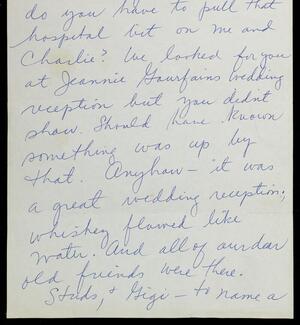 do you have to pull that
hospital bit on me and
Charlie? We looked for you
at Jeannie Gourfains wedding
reception but you didn't
show. Should have known
something was up by
that. Anyhow – it was
a great wedding reception;
whiskey flowed like
water. And all of our dear
old friends were there.
Studs, & Gigi – to name a